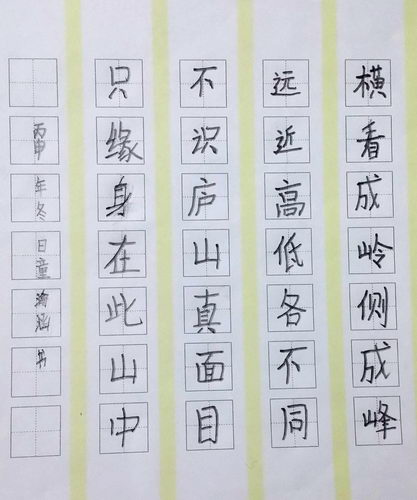 横看成岭侧成峰
远近高低各不同
不识庐山真面目
只缘身在此山中
丙申年冬日童涵书